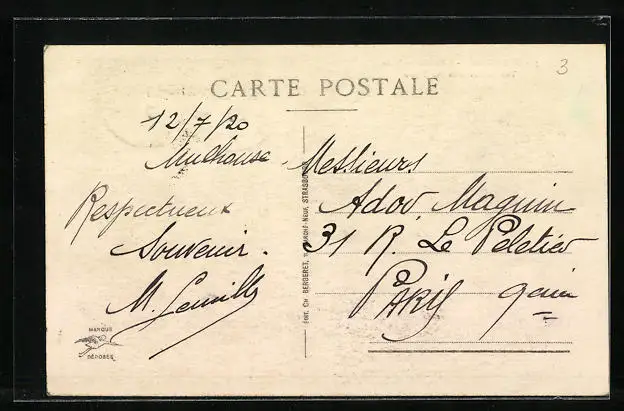 3
CARTE POSTALE
12/7/20
Mulhouse
Respectueux
Souvenir.
M.
Messieurs
Adov. Maquin
31 R. Le Peletier
Paris 9eme
EDIT. CH. BERGERET, MARCHÉ-NEUF, STRASBOURG
MARQUE
DÉPOSÉE